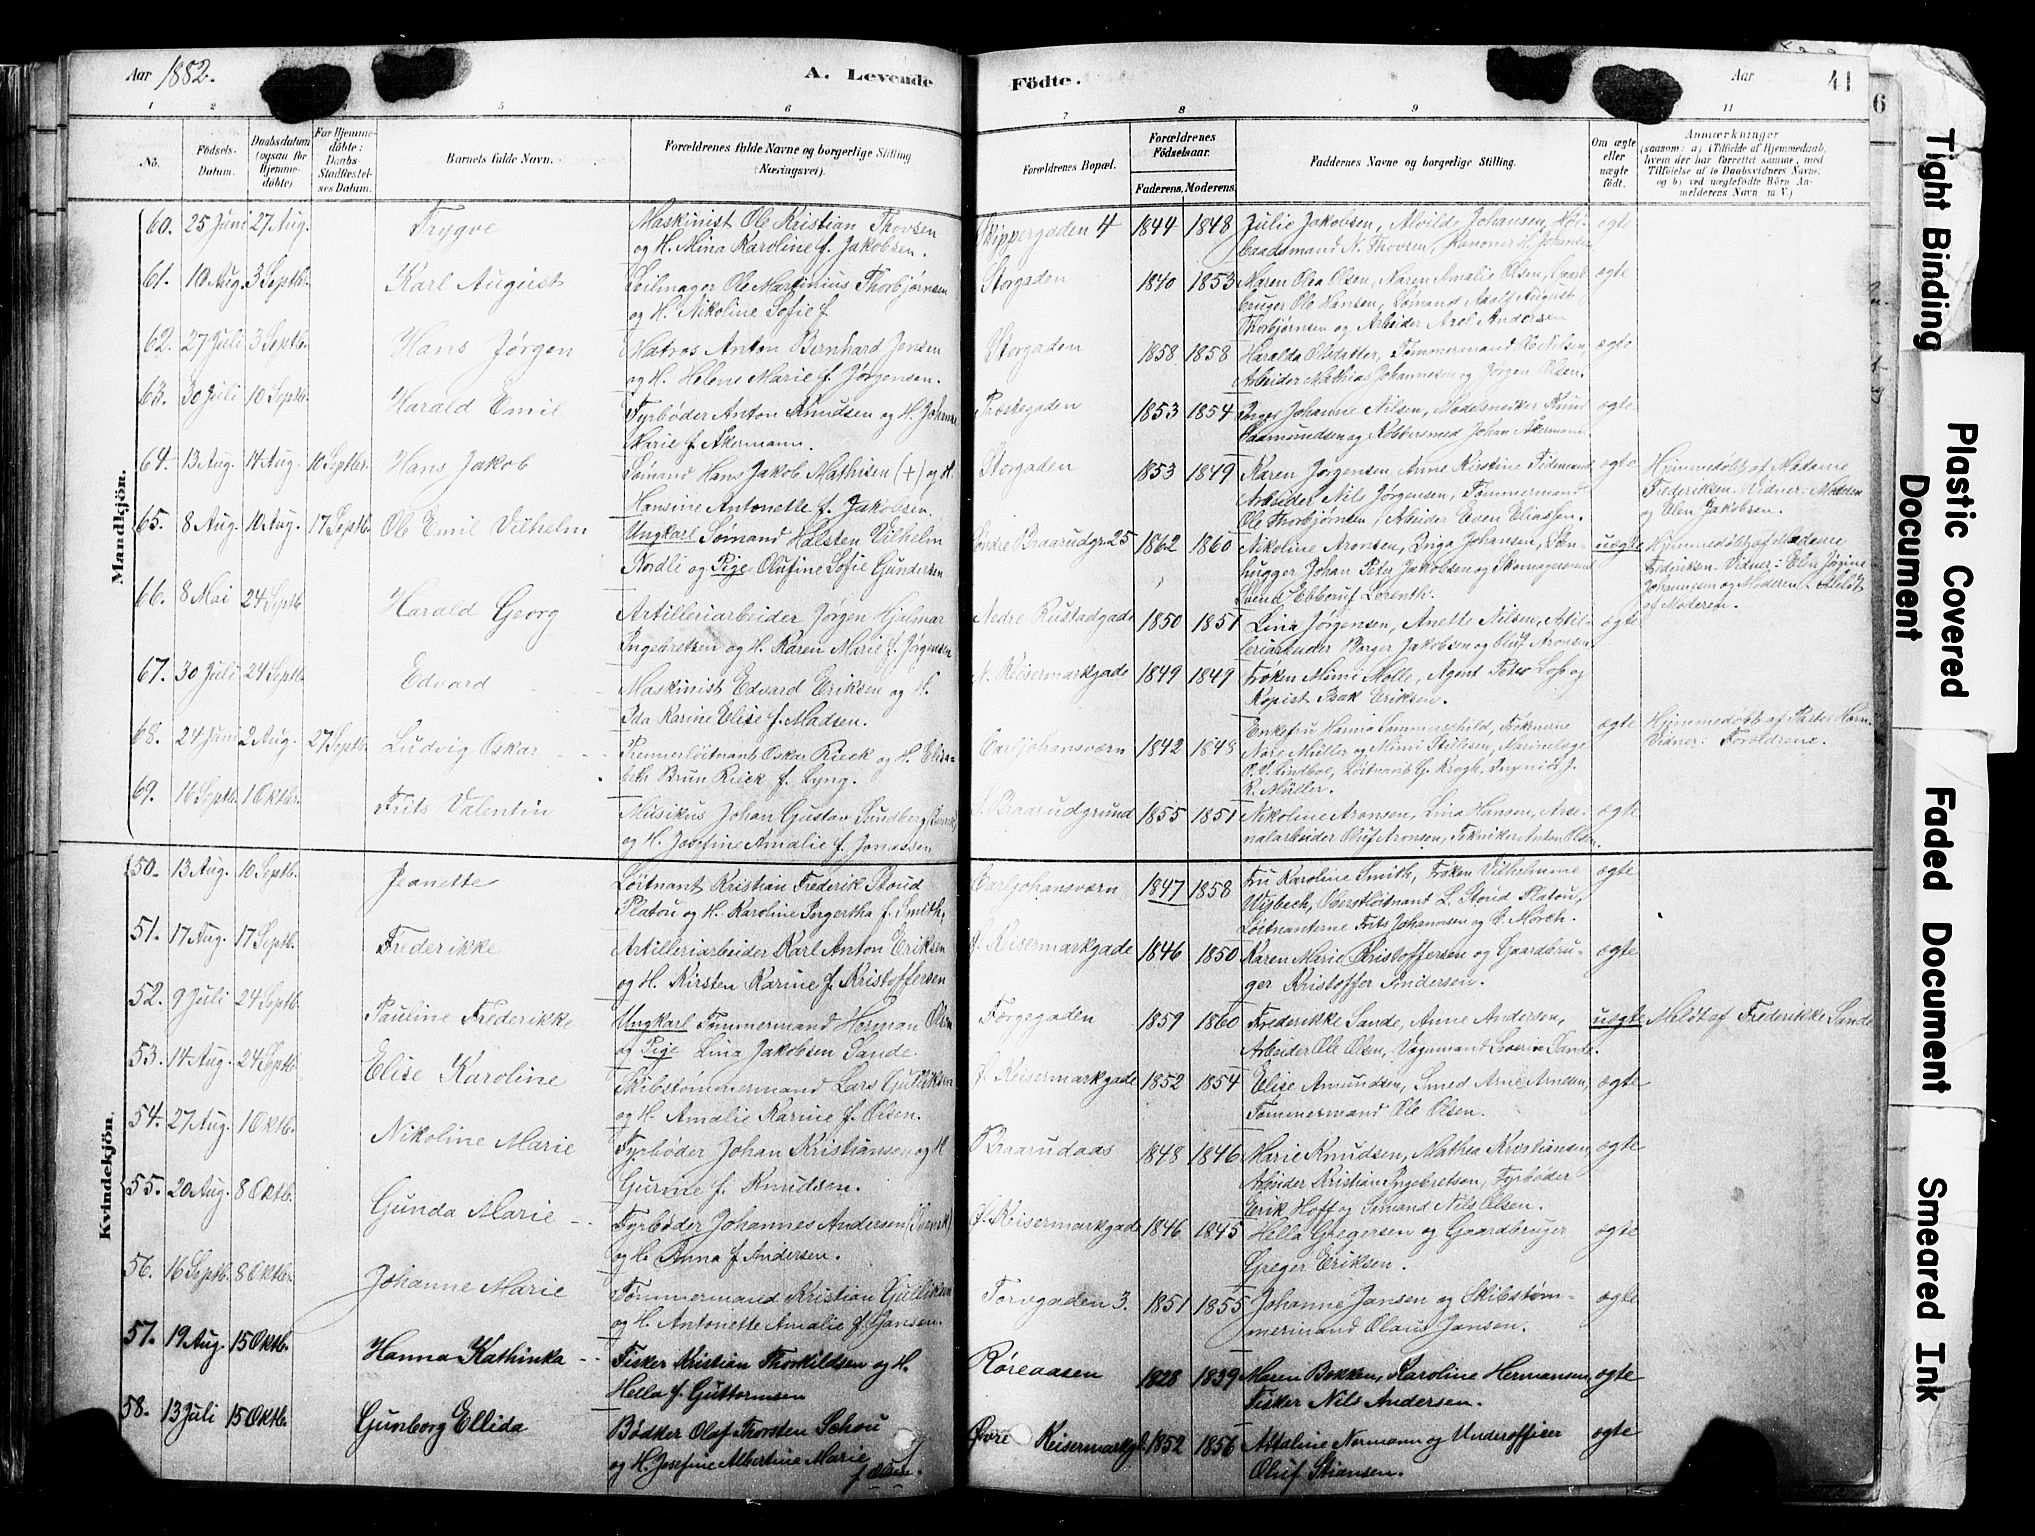 Aar 1882.
A. Levende
Födte.
Aar
41
6
1 2 4 5 6 7 8 9 11
No.
Födsels-Datum.
Daabsdatum (ogsaa for Hjemmedöbte)
For Hjemmedöbte: Daabs-Stadfæstelses Datum.
Barnets fulde Navn.
Forældrenes fulde Navne og borgerlige Stilling (Næringsvei).
Forældrenes Bopæl.
Forældrenes Födselsaar.
Faderens. Moderens.
Faddernes Navne og borgerlige Stilling.
Om ægte eller uægte födt.
Anmærkninger (saasom: a) i Tilfælde af Hjemmedaab, hvem der har forrettet samme, med Tilföielse af to Daabsvidners Navne, og b) ved uægtefödte Börn Anmelderens Navn m V.)
Mandkjön.
60. 25 Juni 27 Aug. Trygve
Maskinist Ole Kristian Thovsen
og H. Mina Karoline f. Jakobsen.
Skippergaden 4 1844 1848
Julie Jakobsen, Alvilde Johansen,
baadsmand N. Thovsen, Kanoner H. Johansen
ægte
61. 10 Aug. 3 Septb. Karl August
Seilmager Ole Martinius Thorbjørnsen
og H. Nikoline Sofie f
Storgaden 1840 1853
Maren Olea Olsen, Maren Amalie Olsen, Gaard-
bruger Ole Hansen, Sømand Adolf August
Thorbjørnsen og Arbeider Axel Andersen
ægte
62. 27 Juli 3 Septb. Hans Jørgen
Matros Anton Bernhard Jensen
og H. Helene Marie f. Jørgensen.
Storgaden 1858 1858
Haralda Olsdatter, Tømmermand Nilsen,
Arbeider Mathias Johannesen og Jørgen Olsen.
ægte
63. 30 Juli 10 Septb. Harald Emil
Fyrbøder Anton Knudsen og H. Johanne
Marie f. Akermann.
1853 1854
Inger Johanne Nilsen, Modelsnedker
Aamundsen og Kobbersmed Johan Akermann
ægte
64. 13 Aug. 14 Aug. 10 Septbr. Hans Jakob
Sømand Hans Jakob Mathisen (+) og H.
Hansine Antonette f. Jakobsen.
Storgaden 1853 1849
Karen Jørgensen, Anne Kirstine Tidemand
Arbeider Nils Jørgensen, Tømmermand
Ole Thorbjørnsen, Arbeider Even Eliassen.
ægte
Hjemmedøbt af Madame
Frederiksen. Vidner: Moderen
og Elen Jakobsen.
65. 8 Aug. 10 Aug. 17 Septb. Ole Emil Vilhelm
Ungkarl Sømand Halsten Vilhelm
Nordli og Pige Olufine Sofie Gundersen
Søndre Braarudgr. 25 1862 1860
Nikoline Aronsen, Inga Johansen, Sten-
hugger Johan Peter Jakobsen og Skomagersvend
Svend Ebberuf Lorentz.
uægte
Hjemmedøbt af Madame
Frederiksen. Vidner: Elen Jørgine
Johannesen og Moderen. Meldt
af Moderen.
66. 8 Mai 24 Septb. Harald Georg
Artilleriarbeider Jørgen Hjalmar
Ingebretsen og H. Karen Marie f. Jørgensen
Nedre Rustadgade 1850 1851
Lina Jørgensen, Anette Nilsen, Artil-
leriarbeider Børger Jakobsen og Oluf Aronsen
ægte
67. 30 Juli 24 Septb. Edvard
Maskinist Edvard Eriksen og H.
Ida Karine Elise f. Madsen.
N. Keisermarkgade 1849 1849
Frøken Mimi Molle, Agent Peter Loss og
Kopist Isak Eriksen.
ægte
68. 24 Juni 2 Aug. 27 Septb. Ludvig Oskar
Premierløitnant Oskar Rieck og H. Elisa-
beth Brun Rieck f. Lyng.
Carljohansværn 1842 1848
Enkefru Hanna Sommerschild, Frøknerne
Müller og Mimi Stillesen, Marinelæge
O. V. Lindboe, Løitnant G. Krogh, Ingeniør J.
R. Müller.
ægte
Hjemmedøbt af Pastor Horn.
Vidner: Forældrene.
69. 16 Septb. 1 Oktbr. Frits Valentin
Musikus Johan Gustav Sundberg
og H. Josefine Amalie f. Jonassen
Braarudgrund 1855 1851
Nikoline Aronsen, Lina Hansen, Arse-
nalarbeider Oluf Aronsen, Tekniker Anton Olsen.
ægte
Kvindekjön.
50. 13 Aug. 10 Septb. Jeanette
Løitnant Kristian Frederik Stoud
Platou og H. Karoline Ingertha f. Smith.
Carljohansværn 1847 1858
Fru Karoline Smith, Frøken Vilhelmine
Wisbech, Oberstløitnant L. Stoud Platou,
Løitnanterne Frits Johannsen og C. Mørch.
ægte
51. 17 Aug. 17 Septb. Frederikke
Artilleriarbeider Karl Anton Eriksen
og H. Kirsten Karine f. Kristoffersen
Keisermarkgade 1846 1850
Karen Marie Kristoffersen og Gaardbru-
ger Kristoffer Andersen.
ægte
52. 9 Juli 24 Septb. Pauline Frederikke
Ungkarl Tømmermand Herman Olsen
og Pige Lina Jakobsen Sande.
1859 1860
Frederikke Sande, Anne Andersen,
Arbeider Ole Olsen, Vognmand Severin Sande.
uægte
Meldt af Frederikke Sande
53. 14 Aug. 24 Septb. Elise Karoline
Skibstømmermand Lars Gulliksen
og H. Amalie Karine f. Olsen.
Keisermarkgade 1852 1854
Elise Amundsen, Smed Arne Arnesen,
Tømmermand Ole Olsen.
ægte
54. 27 Aug. 1 Oktb. Nikoline Marie
Fyrbøder Johan Kristiansen og H
Gurine f. Knudsen.
Braarudaas 1848 1846
Marie Knudsen, Mathea Kristiansen,
Arbeider Kristian Ingebretsen, Fyrbøder
Erik Hoff og Sømand Nils Olsen.
ægte
55. 20 Aug. 8 Oktb. Gunda Marie
Fyrbøder Johannes Andersen
og H. Anna f. Andersen.
Keisermarkgade 1846 1845
Hella Gregersen og Gaardbruger
Greger Eriksen.
ægte
56. 16 Septb. 8 Oktbr. Johanne Marie
Tømmermand Kristian Gulliksen
og H. Antonette Amalie f. Jansen.
Torvgaden 3. 1851 1855
Johanne Jansen og Skibstøm-
mermand Olaus Jansen.
ægte
57. 19 Aug. 15 Oktb. Hanna Kathinka
Fisker Kristian Thorkildsen og H.
Hella f. Guttormsen
Røreaasen 1828 1839
Maren Bekken, Karoline Hermansen,
Fisker Nils Andersen.
ægte
58. 13 Juli 15 Oktb. Gunborg Ellida
Bødker Olaf Thorsten Schou
og H. Josefine Albertine Marie
f. Olsen.
Øvre Keisermarkgt. 1852 1856
Attaline Normann og Underofficer
Oluf Stiansen.
ægte
Tight Binding
Plastic Covered Document
Faded Document
Smeared Ink